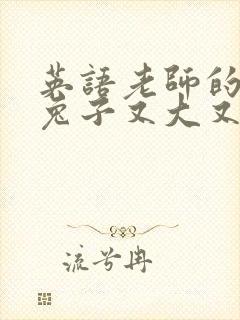 英語老師的
兔子又大又
流兮冉